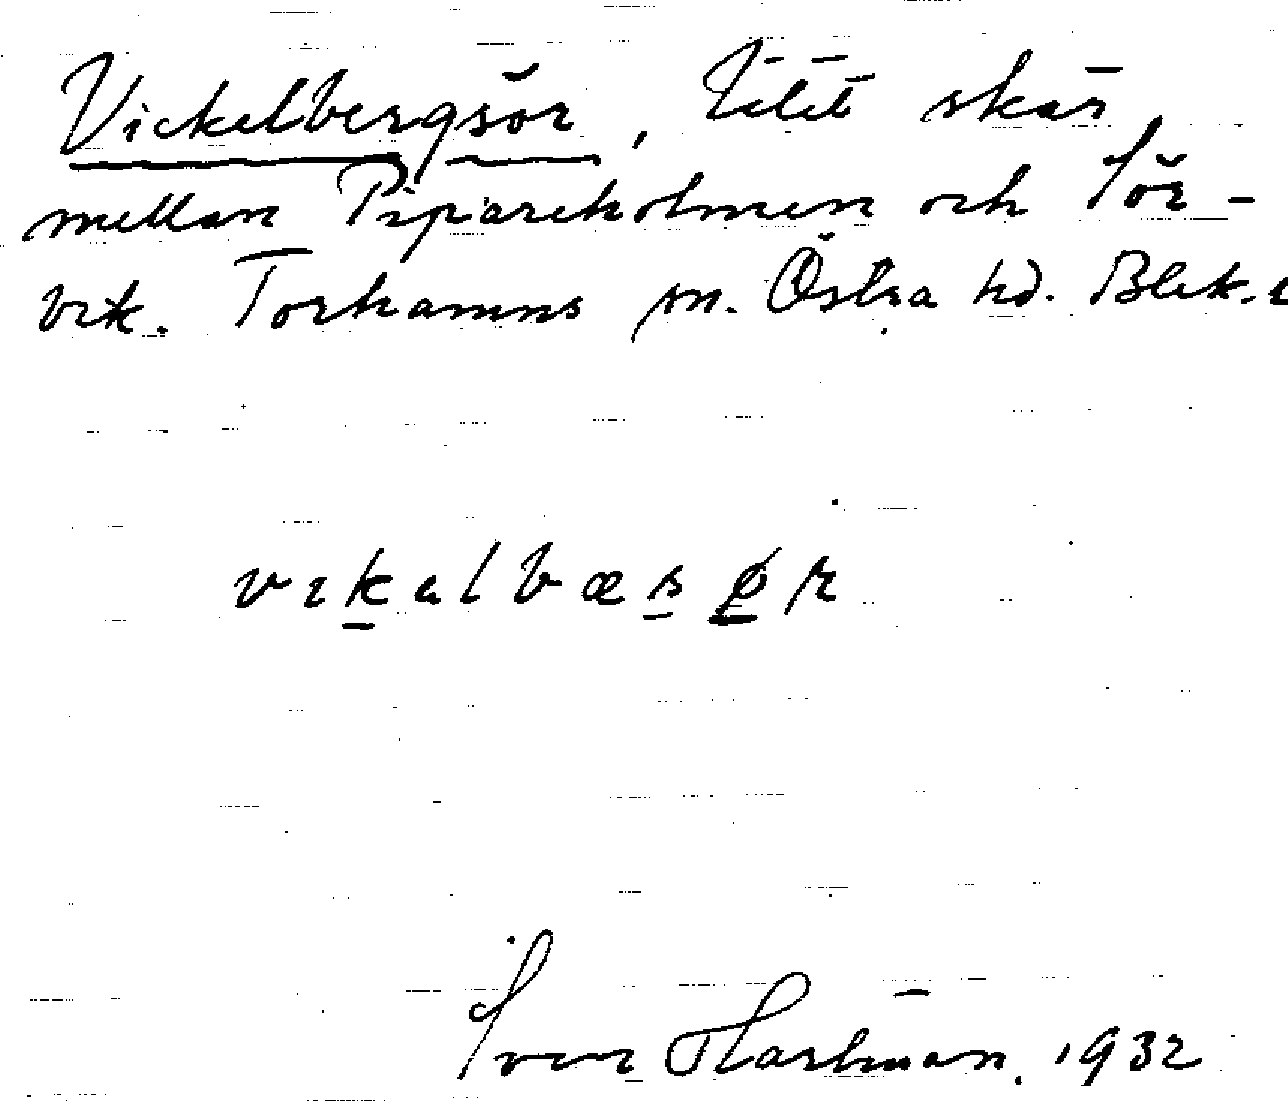 Vickelbergsör, litet skär
mellan Pipareholmen och Sör-
vik. Torhamns sn. Östra hd. Blek.
vikalbæsør
Sven Hartman. 1932